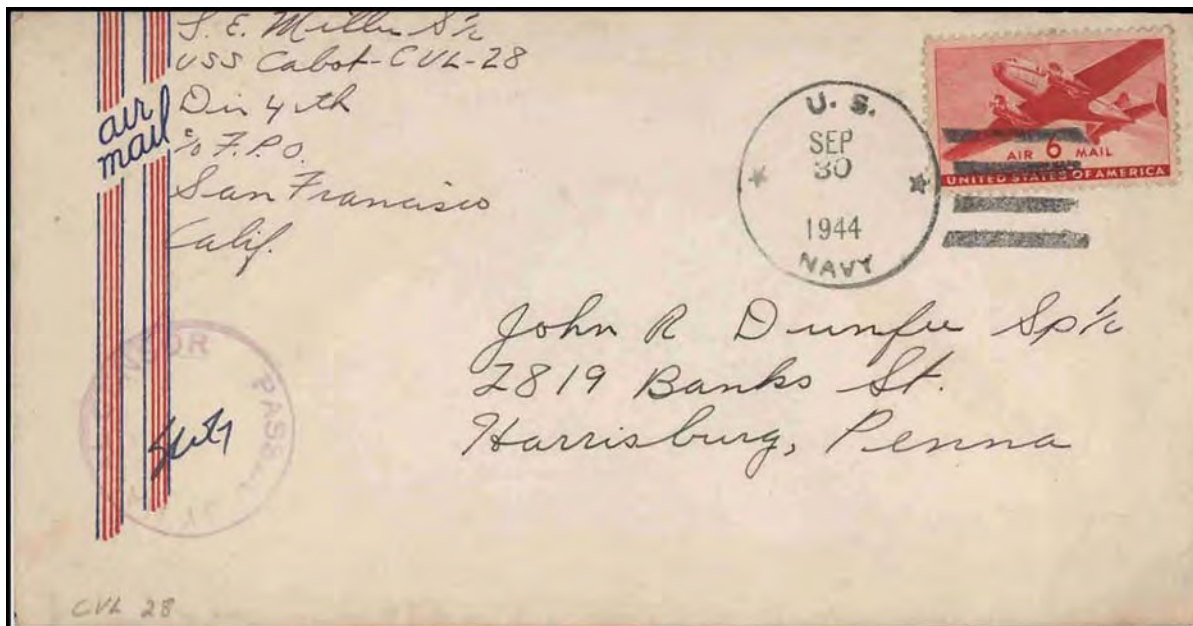 S. E. Miller S 1/c
USS Cabot-CVL-28
Div 4th
c/o F.P.O.
San Francisco
Calif.
air
mail
U. S.
SEP
30
1944
NAVY
AIR 6 MAIL
UNITED STATES OF AMERICA
John R Dunfee Sp 1/c
2819 Banks St.
Harrisburg, Penna
PASSED
CVL 28